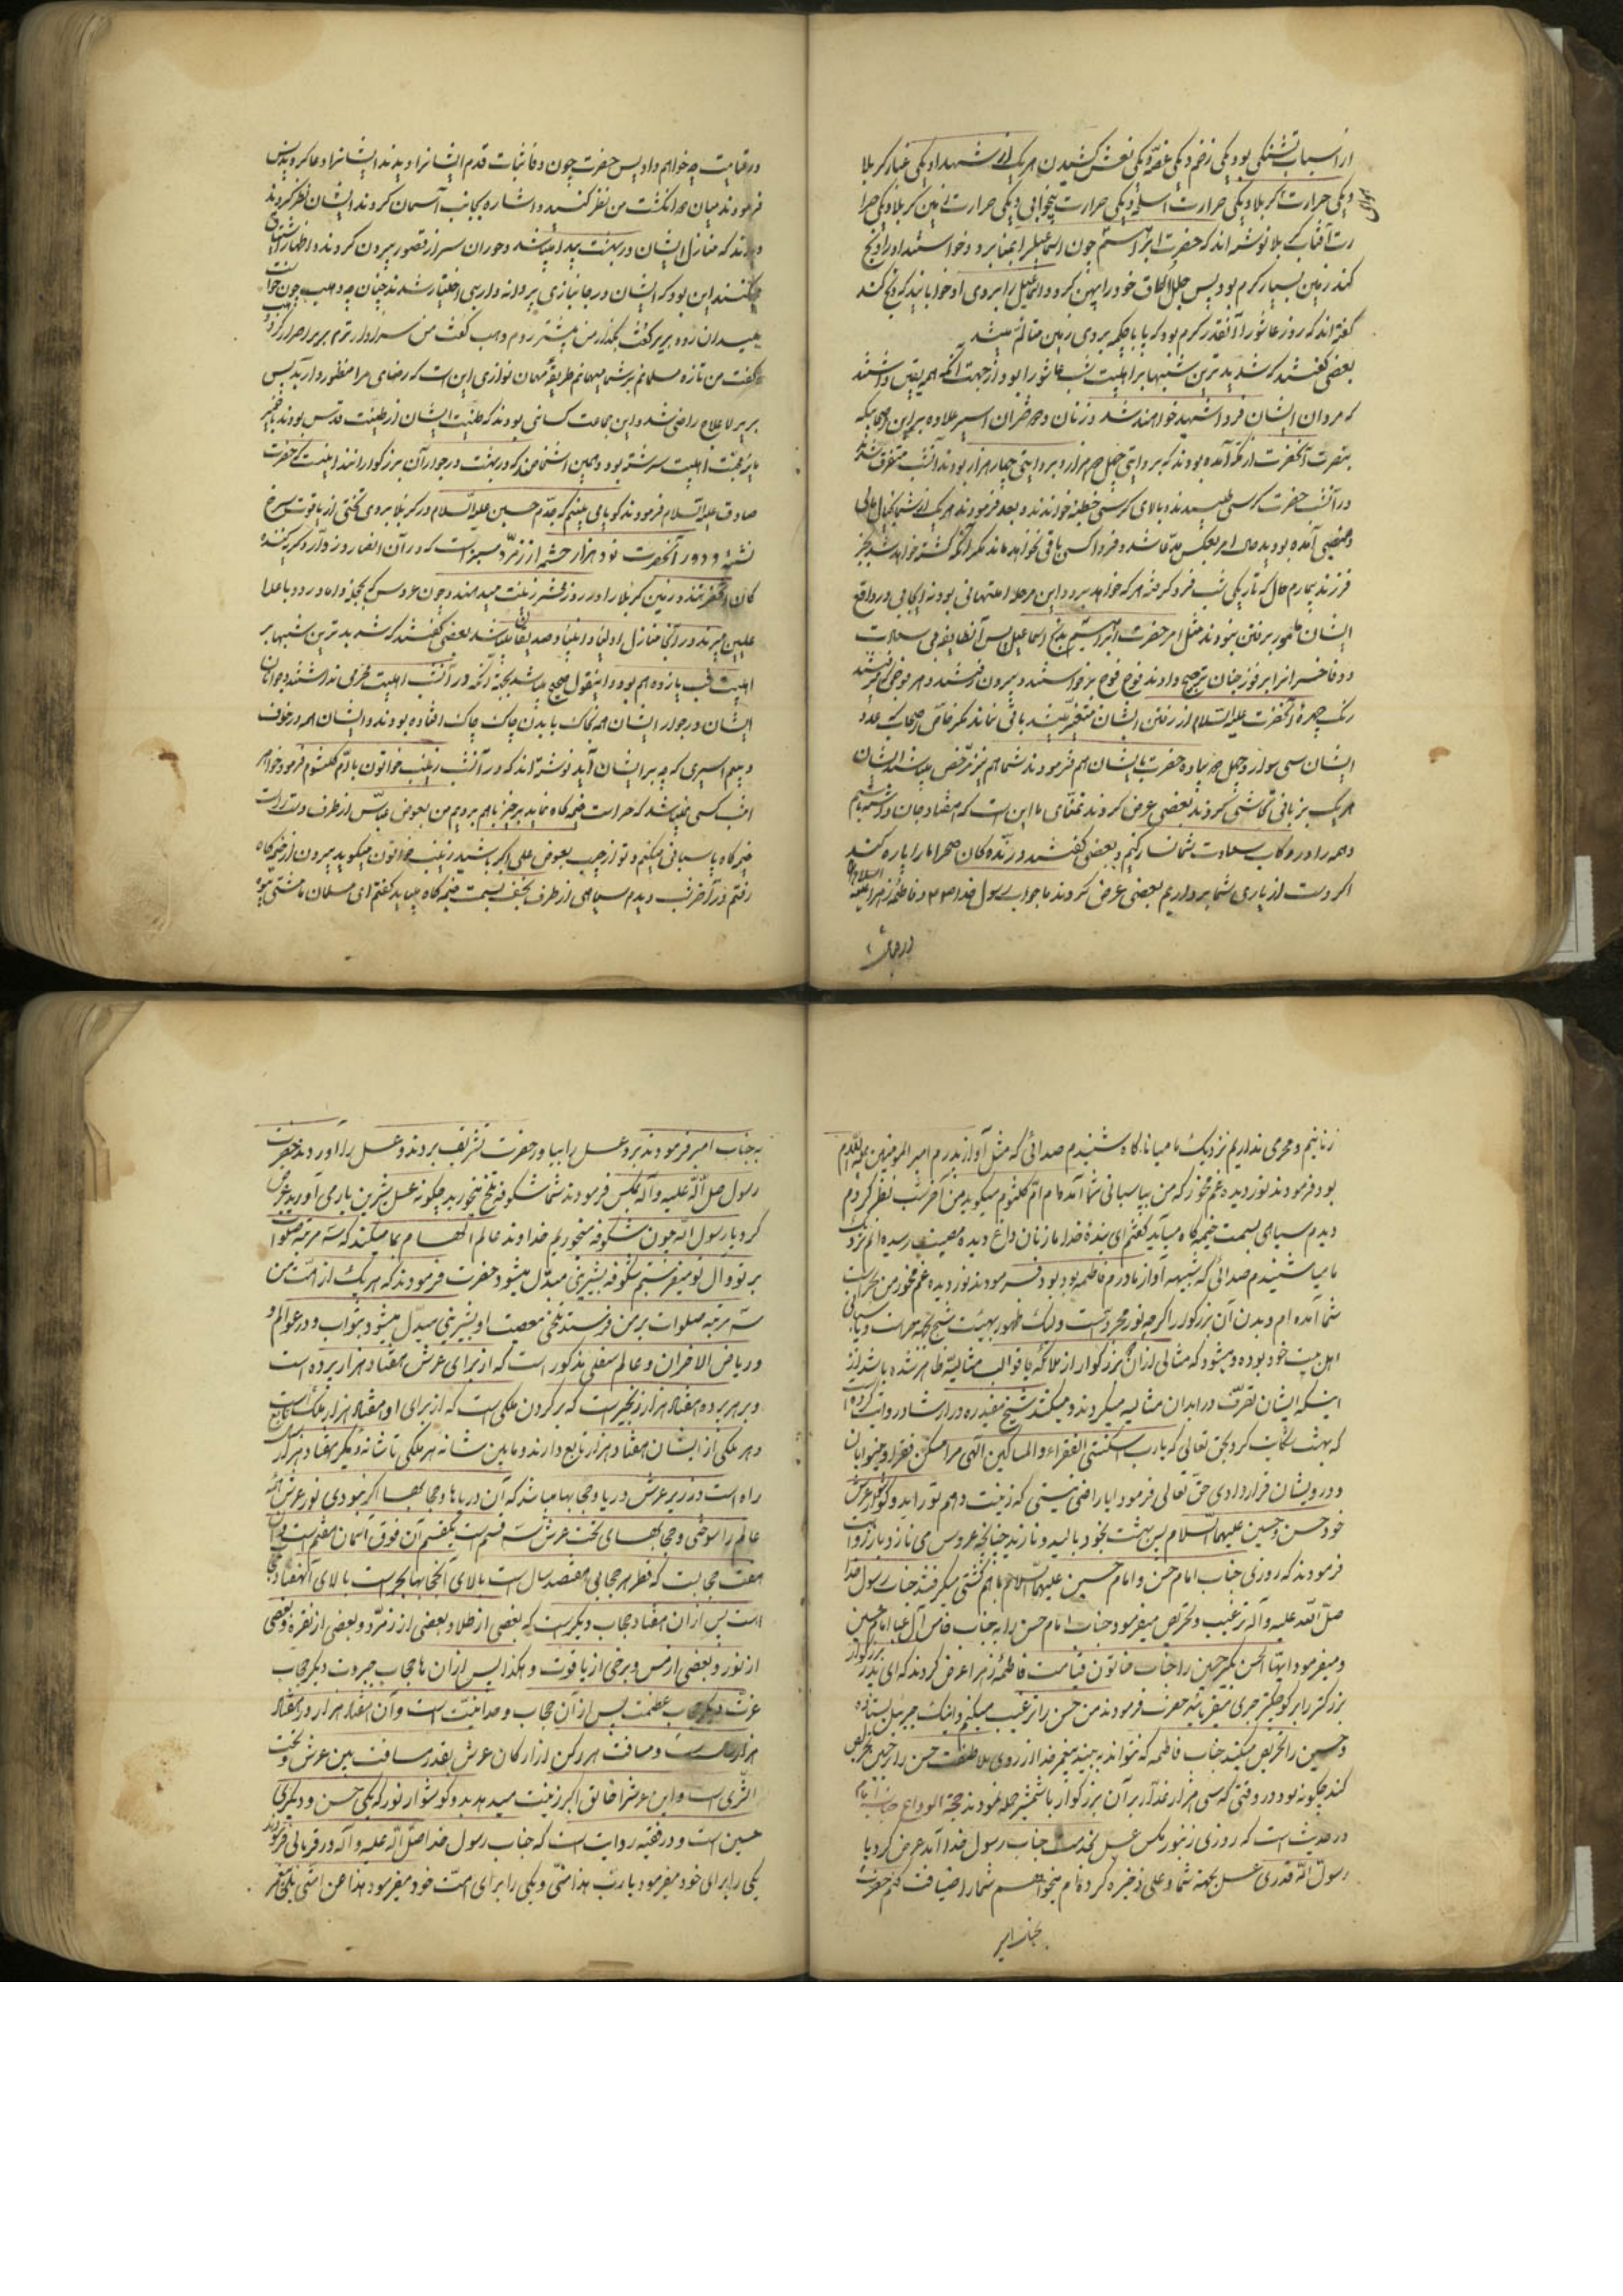 از اسباب تشنگی بود و یکی زخم و یکی غصه و یکی نعش کشیدن هر یک از شهدا و یکی غبار کربلا
و یکی حرارت کربلا و یکی حرارت اسلحه و یکی حرارت بیخوابی و یکی حرارت زمین کربلا و یکی حرا
رت آفتاب کربلا نوشته اند که حضرت ابراهیم چون اسمعیل را بمنا برد و خواستند او را ذبح
کند زمین بسیار گرم بود پس خود را پهن کرد و اسمعیل را بروی او خوابانید که ذبح کند
گفته اند که روز عاشورا آنقدر گرم بود که پا با چکمه بروی زمین متألم میشد
بعضی گفتند که شدیدترین شبها بر اهلبیت شب عاشورا بود از جهت آنکه همه یقین داشتند
که مردان ایشان فردا شهید خواهند شد و زنان و دختران اسیر علاوه بر این اصحابیکه
بنصرت آنحضرت از مکه آمده بودند که بروایتی چهل هزار و بروایتی چهار هزار بودند آنشب متفرق شدند
در آنشب حضرت کرسی طلبیدند و بالای کرسی خطبه خواندند و بعد فرمودند هر یک از شما بخیال مالی
و منصبی آمده بودید حال امر بعکس مدعا شد و فردا کسی باقی نخواهد ماند مگر آنکه کشته خواهد شد بجز
فرزند بیمارم حال که تاریکی شب فرو گرفته هر که خواهد برود این مرحله امتحانی بود نه ایجابی در واقع
ایشان مأمور برفتن نبودند مثل امر حضرت ابراهیم بذبح اسماعیل پس آنطایفه بی سعادت
دو فاخسران را بر فوز جنان ترجیح دادند فوج فوج برخواستند و بیرون رفتند و هر فوجی که میرفتند
رنگ چهره آنحضرت علیه السلام از رفتن ایشان متغیر میشد باقی نماند مگر خاص اصحاب که عدد
ایشان سی سوار و چهل پیاده حضرت بایشان هم فرمودند شما هم نیز مرخص میباشید ایشان
هر یک بزبانی تحاشی کردند بعضی عرض کردند تمنای ما این است که هفتاد جان داشته باشیم
و همه را در رکاب سعادت شما نثار کنیم و بعضی گفتند درنده گان صحرا ما را پاره کنند
اگر دست از یاری شما برداریم بعضی عرض کردند ما جواب رسول خدا ص و فاطمه زهرا علیها السلام را
در قیامت چه خواهیم داد پس حضرت چون وفا ثبات قدم ایشانرا دیدند ایشانرا دعا کردند پس
فرمودند میان دو انگشت من نظر کنید و اشاره بجانب آسمان کردند ایشان نظر کردند
دیدند که منازل ایشان در بهشت پیدا میباشد و حوران سر از قصور بیرون کردند و اظهار اشتیاق
میکنند این بود که ایشان در جانبازی پروانه وار بی اختیار شدند چنانچه وهب چون خواست
بمیدان رود بریر گفت بگذار من پیشتر روم وهب گفت من سزاوارترم بریر اصرار کرد وهب
گفت من تازه مسلمانم بر شما میهمانم طریقه مهمان نوازی این است که رضای مرا منظور دارید پس
بریر لاعلاج راضی شد و این جماعت کسانی بودند که طینت ایشان از طینت قدس بودند و خمیر
مایه محبت اهلبیت سرشته بود و همین اشخاصند که در بهشت در جوار آن بزرگوارانند اینست که حضرت
صادق علیه السلام فرمودند گویا می بینم که جدم حسین علیه السلام در کربلا بروی تختی از یاقوت سرخ
نشسته و دور آنحضرت نود هزار خشمه از زمرد سبز است که در آن انصار و زوار و گریه کننده
گان آنحضرتند و زمین کربلا را در روز محشر زینت میدهند چون عروس که بحجله داماد رود با اعلا
علیین میبرند در آن منازل اولیا و انبیا و صدیقان میباشند بعضی گفتند که شدیدترین شبها بر
اهلبیت شب یازدهم بود و اینقول صحیح میباشد بجهة آنکه در آنشب اهلبیت محرمی نداشتند جوانان
ایشان در جوار ایشان همه بخاک با بدن چاک چاک افتاده بودند و ایشان همه در خوف
و بیم اسیری که چه بر ایشان آید نوشته اند که در آنشب زینب خواتون با ام کلثوم فرمود خواهر
امشب کسی نمیباشد که حراست خیمه گاه نماید برخیز با هم برویم من بعوض عباس از طرف دست راست
خیمه گاه پاسبانی میکنم و تو از چپ بعوض علی اکبر باشید زینب خواتون میگوید بیرون از خیمه گاه
رفتم در آخر شب دیدم سیاهی از طرف نجف بسمت خیمه گاه میاید گفتم ای مسلمان ما مشتی بیوه
زنانیم و محرمی نداریم نزدیک ما میا ناگاه شنیدم صدائی که مثل آواز پدرم امیر المومنین علیه السلام
بود فرمودند نور دیده غم مخور که من بپاسبانی شما آمده ام ام کلثوم میگوید من آخر شب نظر کردم
دیدم سیاهی بسمت خیمه گاه میآید گفتم ای بنده خدا ما زنان داغ دیده مصیبت رسیده ایم نزدیک
ما میا شنیدم صدائی که شبیه آواز مادرم فاطمه بود فرمودند نور دیده غم مخور من بحراست
شما آمده ام و بدن آن بزرگوار اگر چه نور مجرد است ولیک ظهور بهیئت شبح بجهة حراست و پاسبانی
اهل بیت خود بوده و میشود که مثالی از آن بزرگوار از ملائکه یا قوالب مثالیه ظاهر شده باشد از
اینکه ایشان تصرف در ابدان مثالیه میکردند و میکنند شیخ مفید ره در ارشاد روایت کرده است
که بهشت شکایت کرد بحق تعالی که یا رب اسکنتنی الفقراء و المساکین الهی مرا مسکن فقرا و بینوایان
و درویشان قرار دادی حق تعالی فرمود ایا راضی نیستی که زینت دهم تو را بدو گوشوار عرش
خود حسن و حسین علیهما السلام پس بهشت بخود بالید و نازید چنانچه عروس می نازد
فرمودند که روزی جناب امام حسن و امام حسین علیهما السلام با هم کشتی میگرفتند جناب رسول خدا
صلی الله علیه و آله ترغیب و تحریص میفرمود جناب امام حسن را به جناب خامس آل عبا امام حسین
و میفرمود ایها الحسن بگیر حسین را جناب خاتون قیامت فاطمه زهرا عرض کردند که ای پدر بزرگوار
بزرگتر را بر کوچکتر جری میفرمائید حضرت فرمودند من حسن را ترغیب میکنم و اینک جبرئیل ایستاده
و حسین را تحریص میکند جناب فاطمه که نتواند به بیند پیغمبر خدا از روی ملاطفت حسن را بر حسین تحریص
کند چگونه بود در وقتی که سی هزار غدار بر آن بزرگوار با شمشیر حمله نمودند حجة الوداع
در حدیث است که روزی زنبور مگس عسل بخدمت جناب رسول خدا آمد عرض کرد یا
رسول الله قدری عسل بجهة شما و علی ذخیره کرده ام میخواهم شما را ضیافت کنم حضرت
جناب امیر
به جناب امیر فرمودند برو عسل را بیاور حضرت تشریف بردند و عسل را آوردند حضرت
رسول صل الله علیه و آله بمگس فرمودند شما شکوفه تلخ میخورید چگونه عسل شیرین بار می آورید عرض
کرد یا رسول الله چون شکوفه میخوریم خداوند عالم الهام بما میکند که سه مرتبه صلوات
بر تو و ال تو میفرستیم شکوفه بشیرینی مبدل میشود حضرت فرمودند که هر یک از امت من
سه مرتبه صلوات بر من فرستد تلخی معصیت او بشیرینی مبدل میشود بثواب و در عوالم
و ریاض الاحزان و عالم سفلی مذکور است که از برای عرش هفتاد هزار پرده است
و بر هر پرده هفتاد هزار زنجیر است که بر گردن ملکی است که از برای او هفتاد هزار ملک است تابع
و هر ملکی از ایشان هفتاد هزار تابع دارند و مابین شانه هر ملکی تا شانه دیگر هفتاد هزار
راه است و در زیر عرش دریا و حجابها میباشد که آن دریاها و حجابها اگر نبودی نور عرش همه
عالم را سوختی و حجابهای تحت عرش سه قسم است یکقسم آن فوق آسمان هفتم است و آن
هفت حجابست که قطر هر حجابی هفتصد سال است بالای آن حجابها بحر است بالای آن هفتاد حجاب
است پس از آن هفتاد حجاب دیگر است که بعضی از طلا و بعضی از زمرد و بعضی از نقره و بعضی
از نور و بعضی از مس و برخی از یاقوت و هکذا پس از آن ها حجاب جبروت و دیگر حجاب
عزت دیگر حجاب عظمت پس از آن حجاب وحدانیت است و آن هفتاد هزار در هفتاد
هزار است و مسافت هر رکن از ارکان عرش بقدر مسافت بین عرش و تحت
الثری است و این عرش را خالق اکبر زینت میدهد بدو گوشوار نور که یکی حسن و دیگری
حسین است و در فقیه روایت است که جناب رسول خدا صل الله علیه و آله دو قربانی فرمودند
یکی را برای خود میفرمود یا رب هذا منی و یکی را برای امت خود میفرمود هذا عن امتی